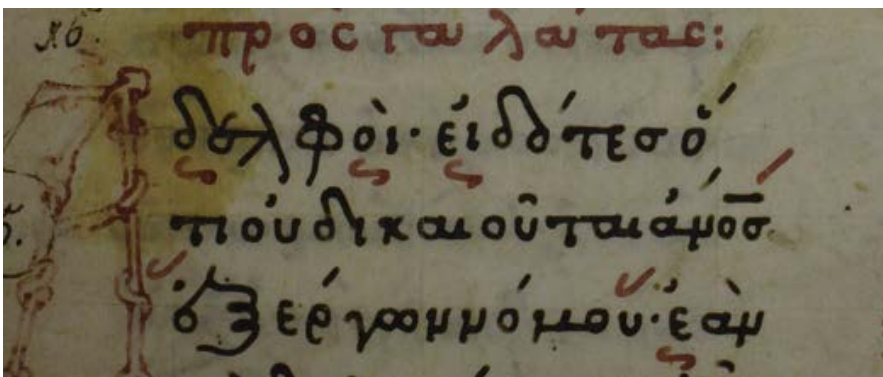 κβ. πρὸς γαλάτας:
Ἀδελφοὶ· εἰδότες ὅ
τι οὐ δικαιοῦται ἄν̅ο̅ς̅
ἐξ ἔργων νόμου· ἐὰν